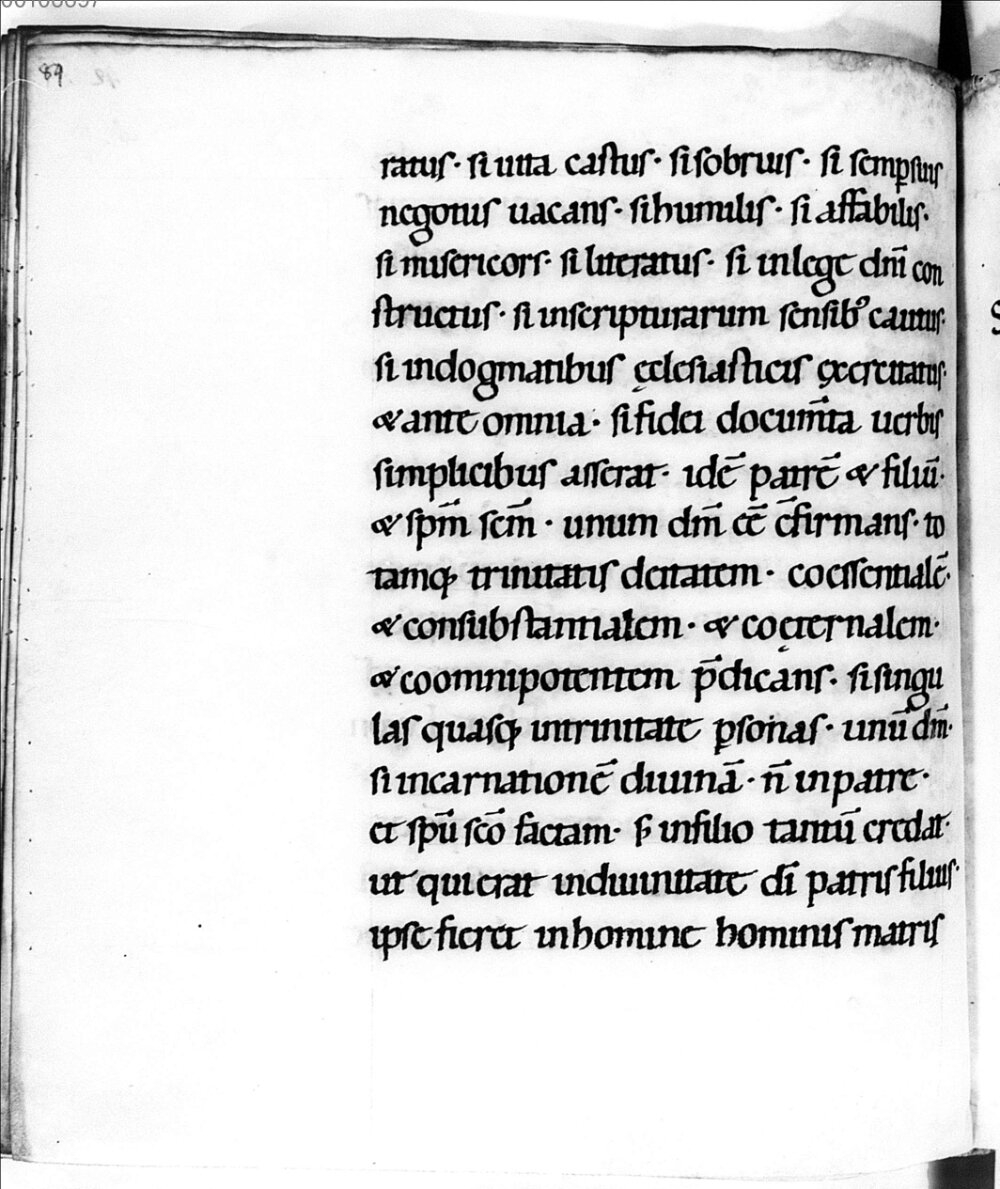 89
ratus· si uita castus· si sobrius· si semp̲ suis
negotiis uacans· si humilis· si affabilis·
si misericors· si literatus· si in lege dn̄i con
structus· si in scripturarum sensibꝰ cautus·
si in dogmatibus ęclesiasticis ęxcercitatus·
& ante omnia· si fidei docum̄ta uerbis
simplicibus asserat· idē patrē & filiū·
& sp̄m sc̄m· unum dm̄ eē c̄firmans· to
tamqꝫ trinitatis deitatem· coessentialē·
& consubstantialem· & coęternalem·
& coomnipotentem p̄dicans· si singu
las quasqꝫ in trinitate ꝑsonas· unū dm̄·
si incarnationē diuinā· n̄ in patre·
et sp̄u sc̄o factam· ꝭ in filio tantū credat·
ut qui erat in diuinitate dī patris filius·
ipse fieret in homine hominis matris